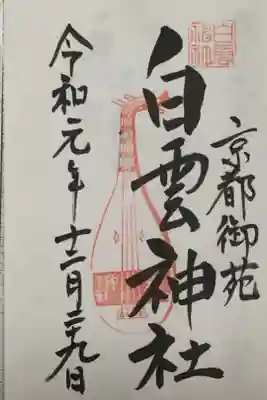 京都御苑
白雲神社
令和元年十二月二十九日